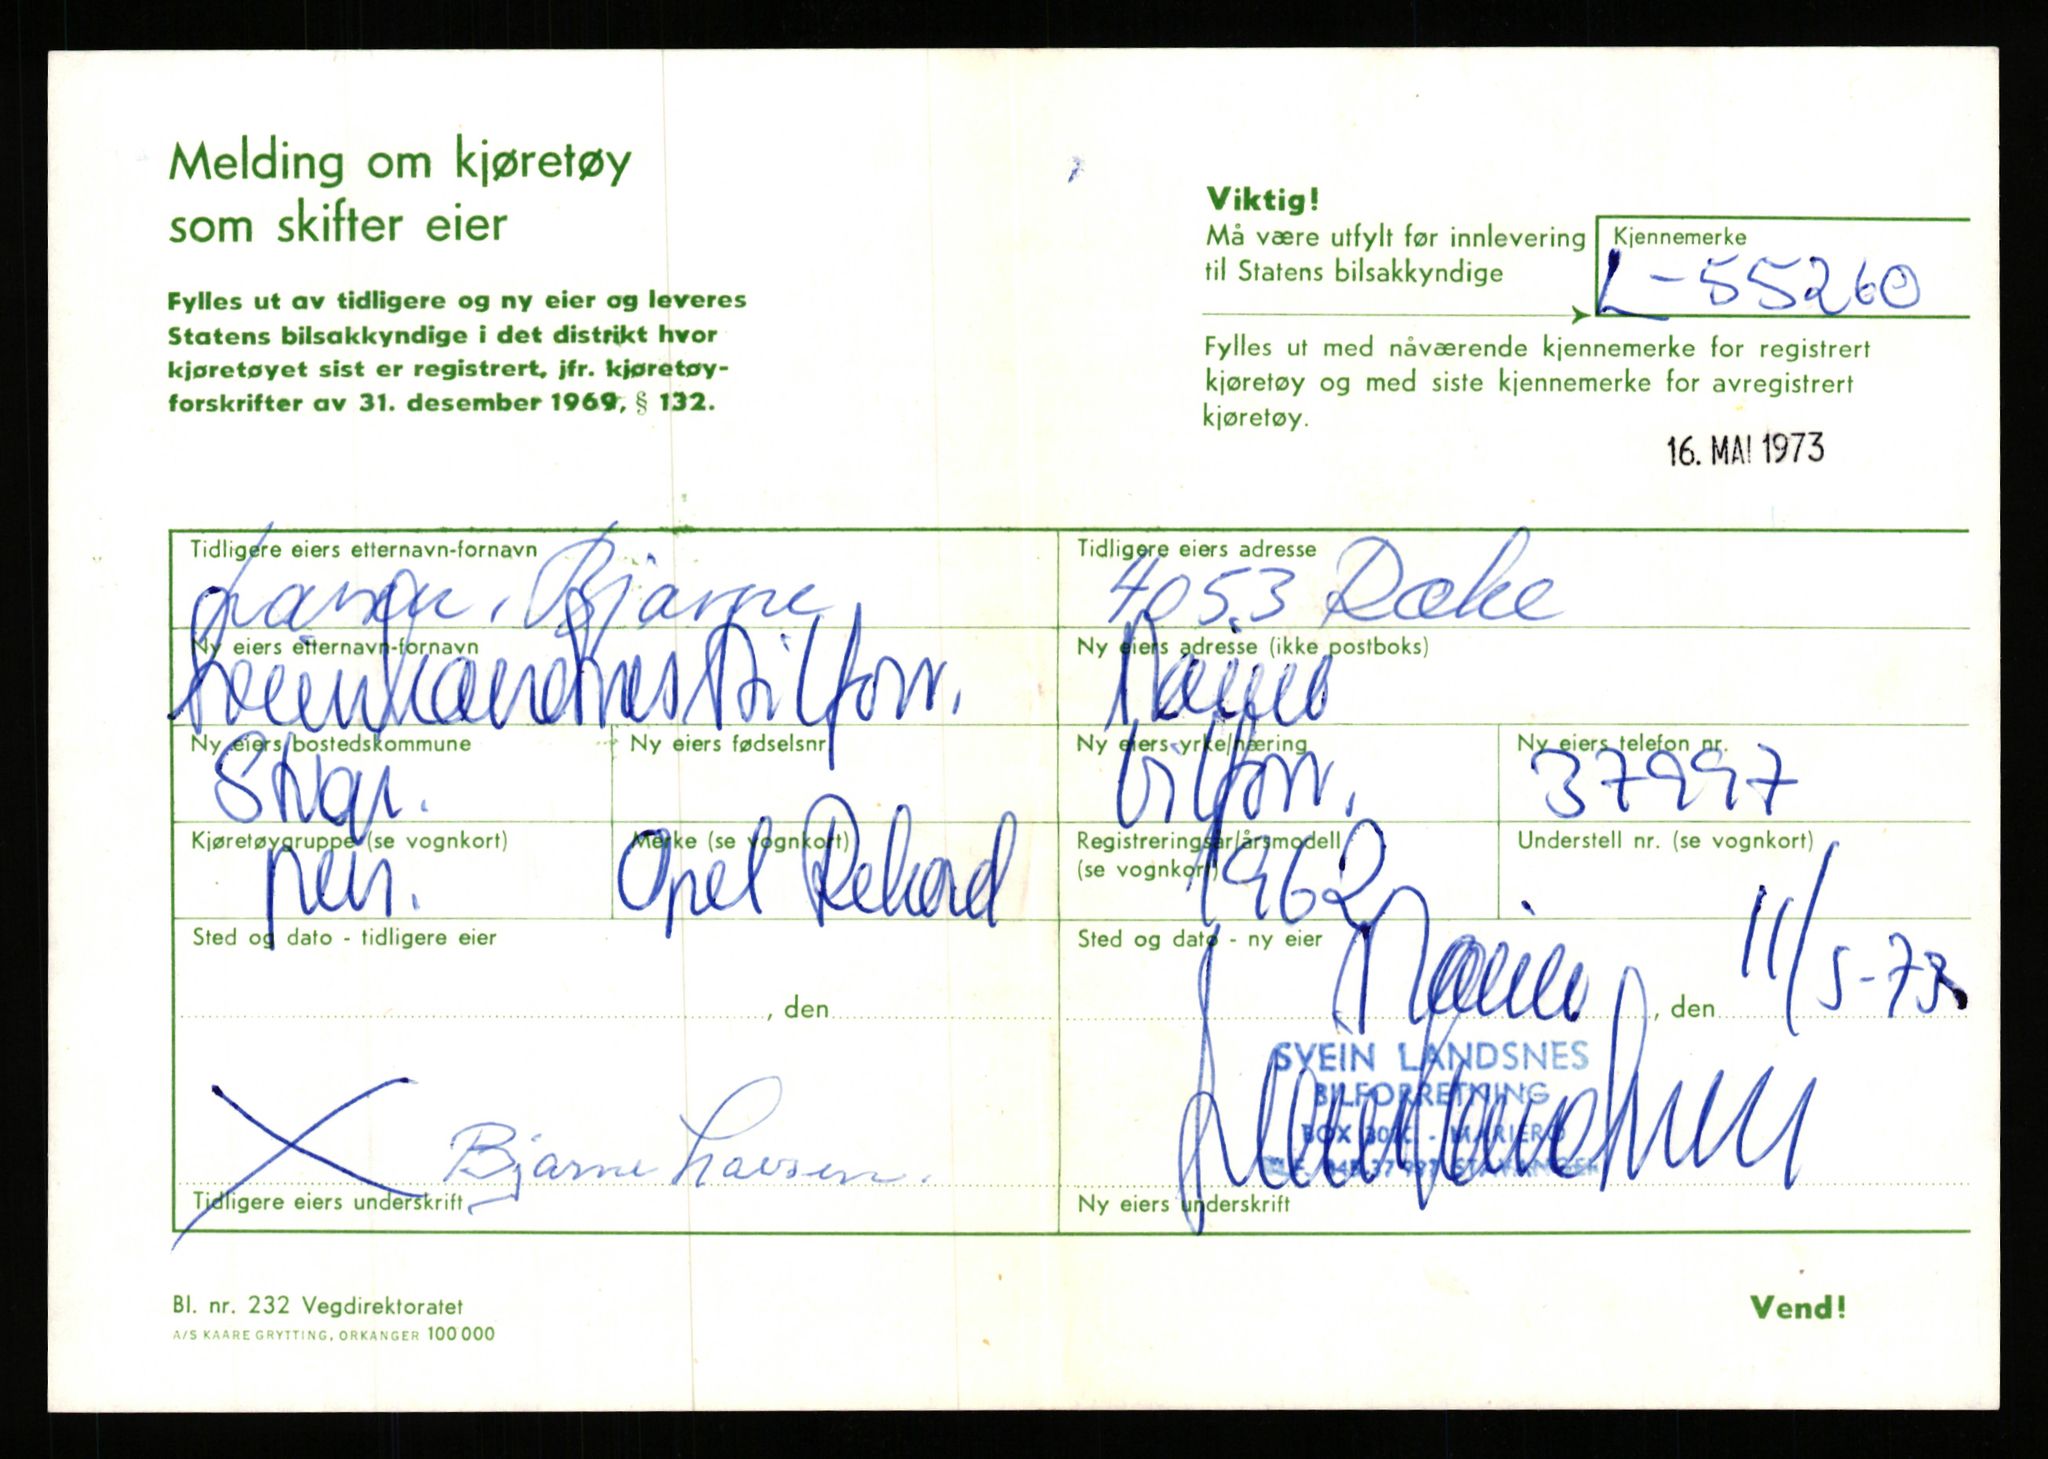 Melding om kjøretøy
som skifter eier
Fylles ut av tidligere og ny eier og leveres
Statens bilsakkyndige i det distrikt hvor
kjøretøyet sist er registrert, jfr. kjøretøy-
forskrifter av 31. desember 1969, § 132.
Viktig!
Må være utfylt før innlevering
til Statens bilsakkyndige
Kjennemerke
L-55260
Fylles ut med nåværende kjennemerke for registrert
kjøretøy og med siste kjennemerke for avregistrert
kjøretøy.
16. MAI 1973
Tidligere eiers etternavn-fornavn
Larsen, Bjarne
Tidligere eiers adresse
4053 Ræke
Ny eiers etternavn-fornavn
Svein Landsnes Bilforr.
Ny eiers adresse (ikke postboks)
Ny eiers bostedskommune
Stvgr.
Ny eiers fødselsnr
Ny eiers yrke/næring
Bilforr.
Ny eiers telefon nr.
37997
Kjøretøygruppe (se vognkort)
pers.
Merke (se vognkort)
Opel Rekord
Registreringsår/årsmodell
(se vognkort)
1962
Understell nr. (se vognkort)
Sted og dato - tidligere eier
, den
Sted og dato - ny eier
, den 11/5-73
SVEIN LANDSNES
BILFORRETNING
BOX - MARIERO
Bjarne Larsen.
Tidligere eiers underskrift
Svein Landsnes
Ny eiers underskrift
Bl. nr. 232 Vegdirektoratet
A/S KAARE GRYTTING, ORKANGER 100 000
Vend!